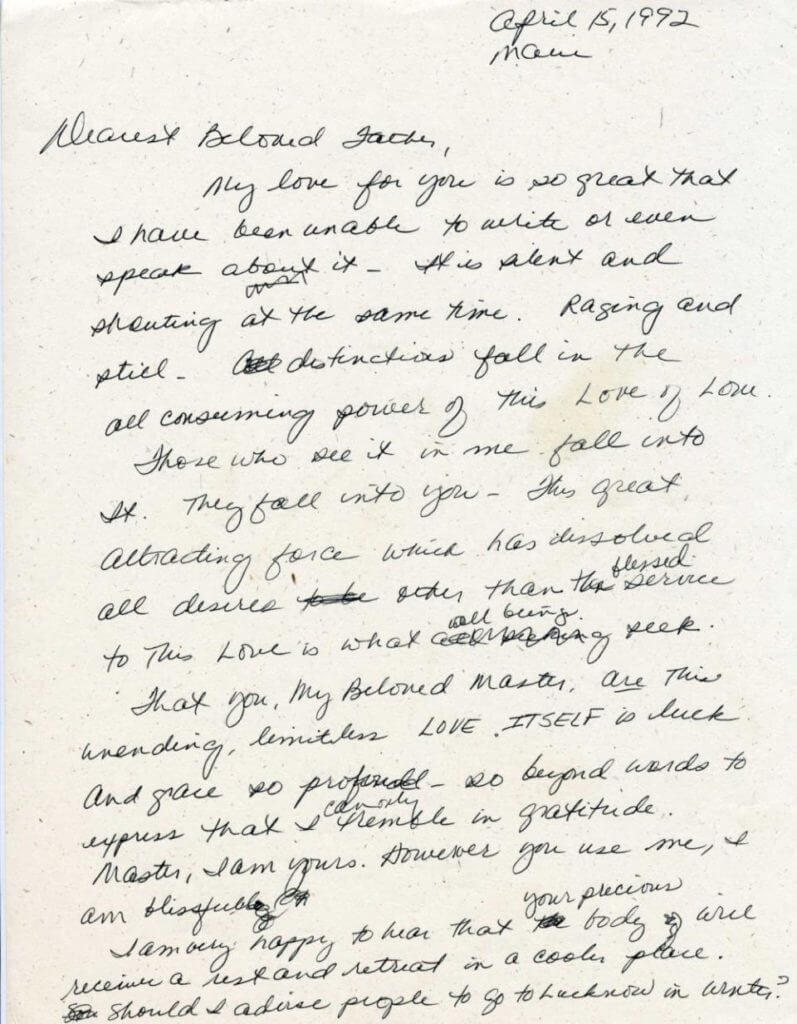 April 15, 1992
Maui
Dearest Beloved Father,
My love for you is so great that
I have been unable to write or even
speak about it - It is silent and
shouting at the same time. Raging and
still - All distinctions fall in the
all consuming power of this Love of Love.
Those who see it in me fall into
It. They fall into you - This great
attracting force which has dissolved
all desires to be other than the blessed service
to This Love is what all being seek.
That you, My Beloved Master, are This
unending, limitless LOVE ITSELF is luck
And grace so profound - so beyond words to
express that I can only tremble in gratitude.
Master, I am yours. However you use me, I
am blissful
I am very happy to hear that your precious body will
receive a rest and retreat in a cooler place.
Should I advise people to go to Lucknow in winter?